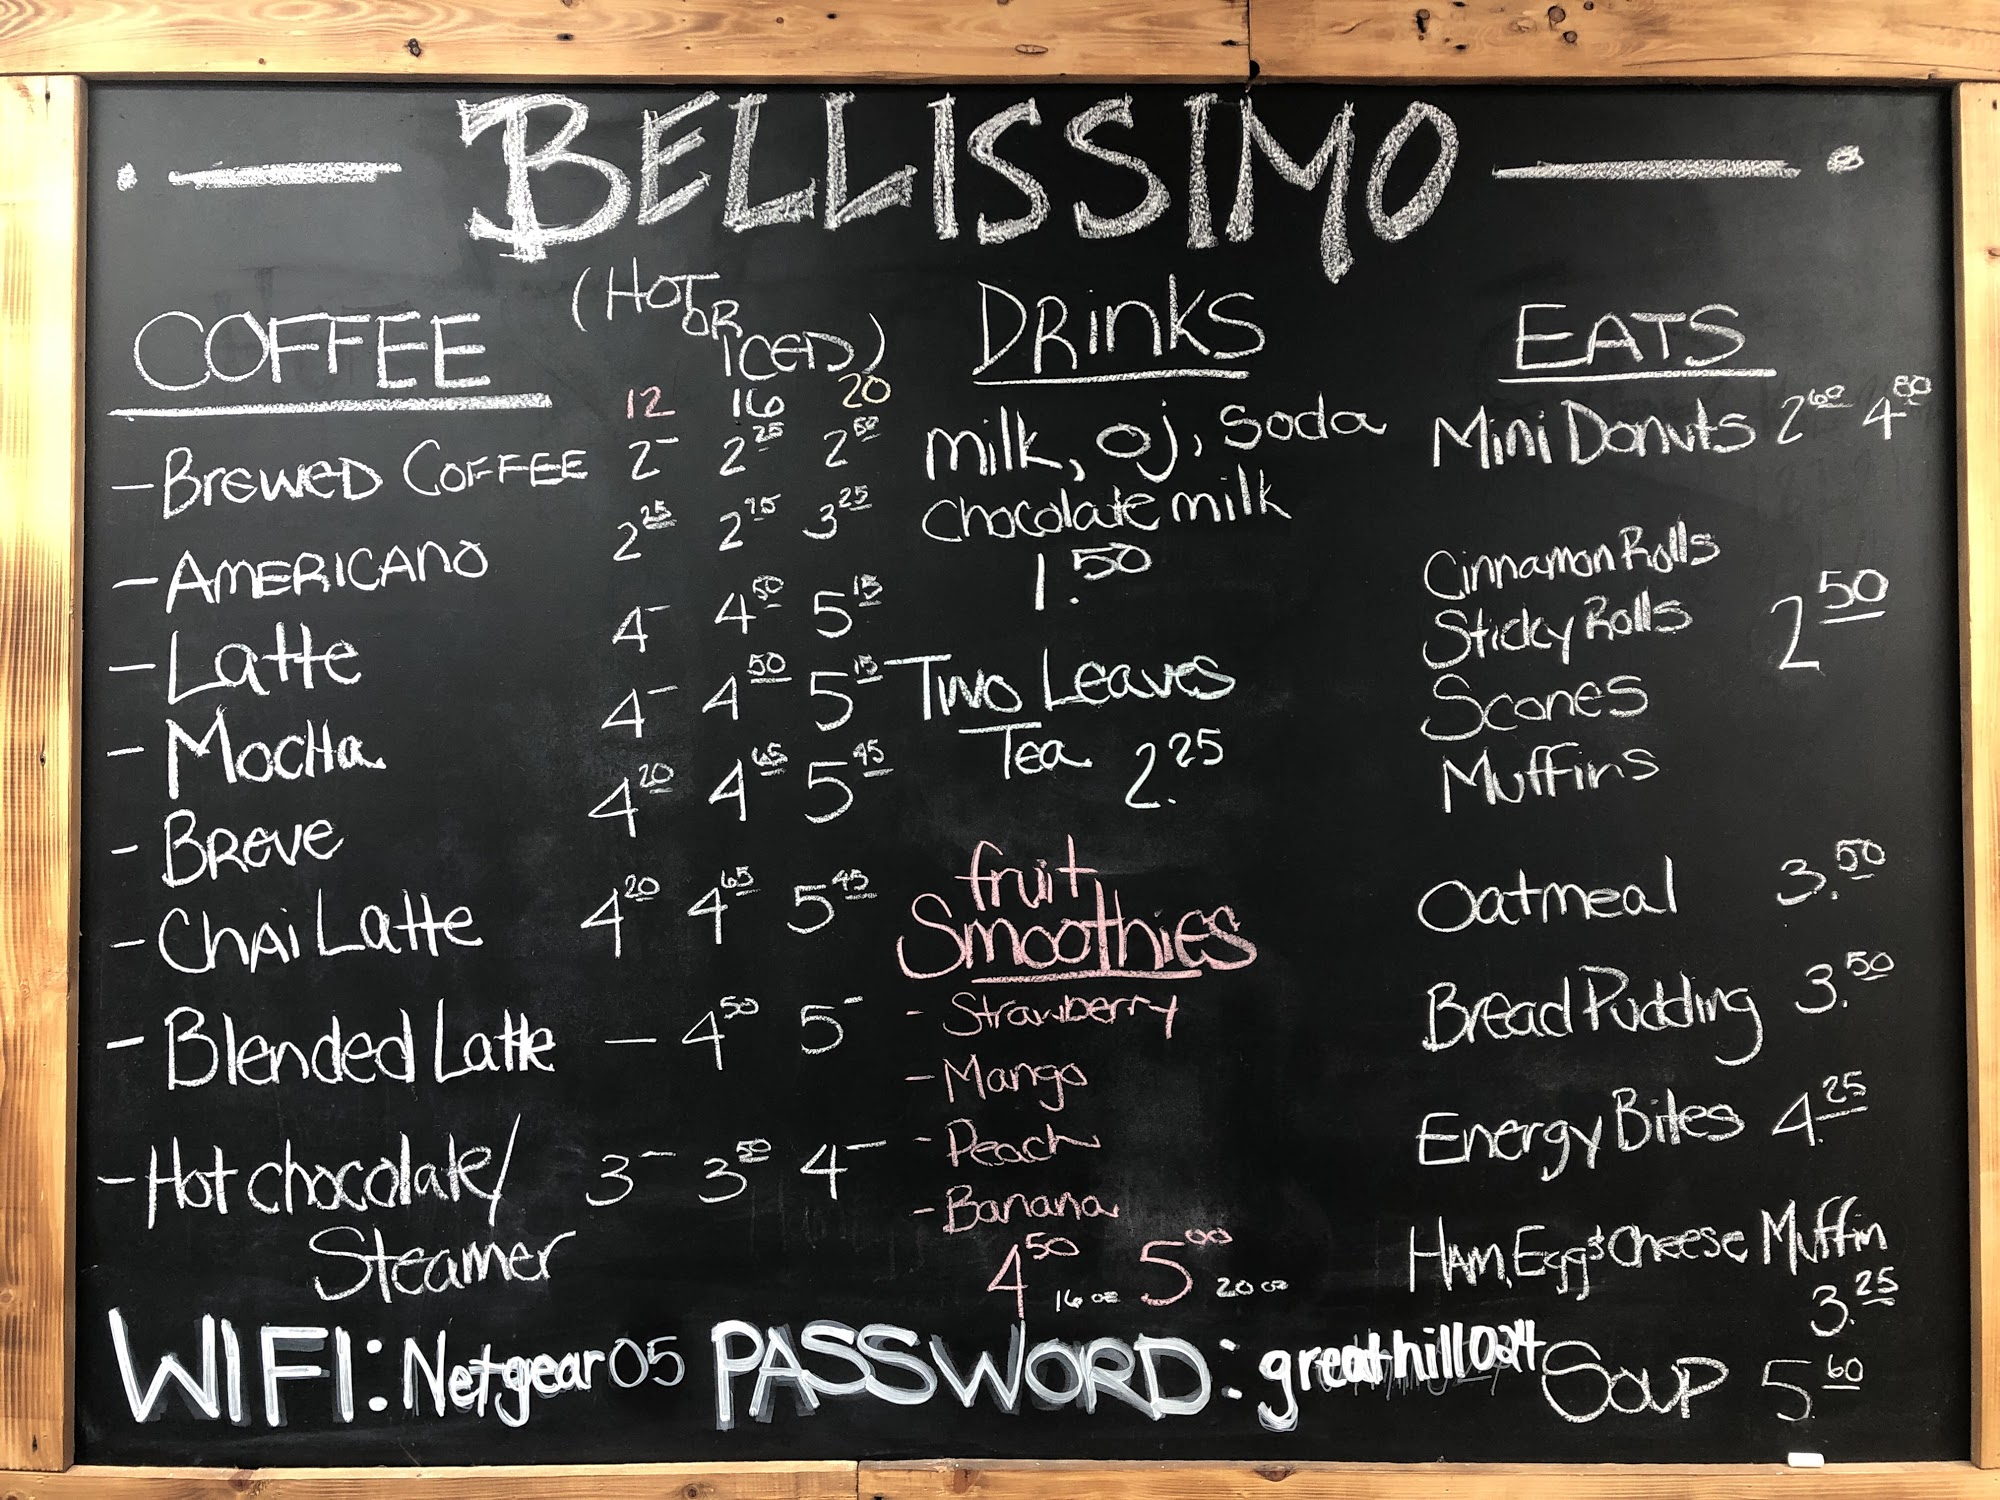 BELLISSIMO
COFFEE
(HOT OR ICED)
12 16 20
- BREWED COFFEE 2- 2.25 2.50
- AMERICANO 2.25 2.75 3.25
- Latte 4- 4.50 5.15
- Mocha 4- 4.50 5.15
- Breve 4.20 4.65 5.45
- Chai Latte 4.20 4.65 5.45
- Blended Latte - 4.50 5-
- Hot chocolate/ 3- 3.50 4-
Steamer
DRINKS
milk, oj, soda
chocolate milk
1.50
Two Leaves
Tea 2.25
fruit
Smoothies
- Strawberry
- Mango
- Peach
- Banana
4.50 16 oz 5.00 20 oz
EATS
Mini Donuts 2.60 4.80
Cinnamon Rolls
Sticky Rolls 2.50
Scones
Muffins
Oatmeal 3.50
Bread Pudding 3.50
Energy Bites 4.25
Ham, Egg & Cheese Muffin
3.25
Soup 5.60
WIFI: Netgear05 PASSWORD: greathill024